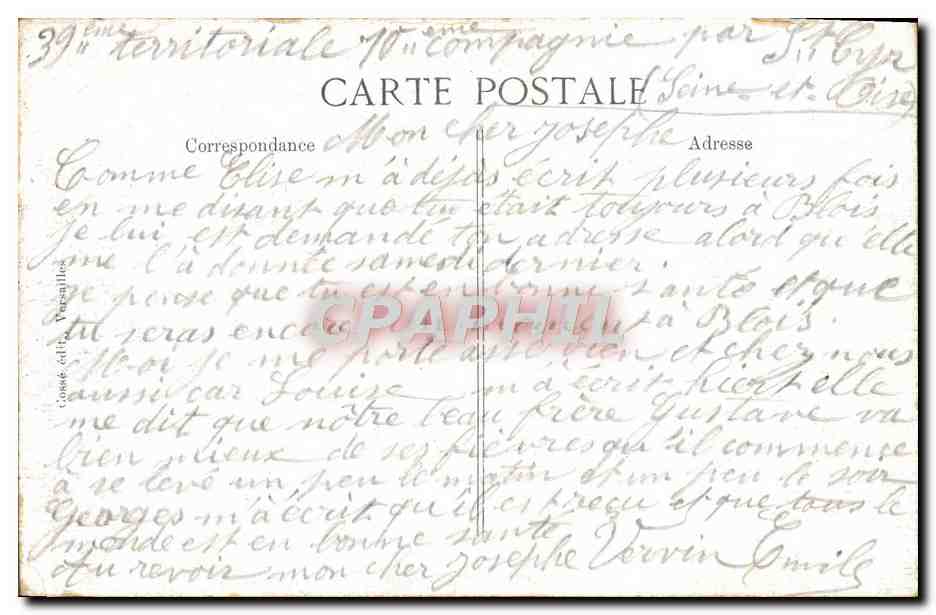 39ème territoriale 10ème compagnie par St Cyr
CARTE POSTALE (Seine-et-Oise)
Correspondance Mon cher Josephe Adresse
Comme Elise m'à déjàs écrit plusieurs fois
en me disant que tu était toujours à Blois
je lui est demandé ton adresse alord qu'elle
me l'à donnée samedi dernier.
je pense que tu est en bonne santé et que
tu seras encore un moment à Blois.
Moi je me porte assé bien et chez nous
aussi car Louise m'à écrit hier elle
me dit que nôtre beau frère Gustave va
bien mieux de ses fièvres qu'il commence
à se levé un peu le matin et un peu le soir
Georges m'à écrit qu'il est reçu et que tous le
monde est en bonne santé
Au revoir mon cher Josephe Vervin Emile
Cossé édit., Versailles
CPAPHIL